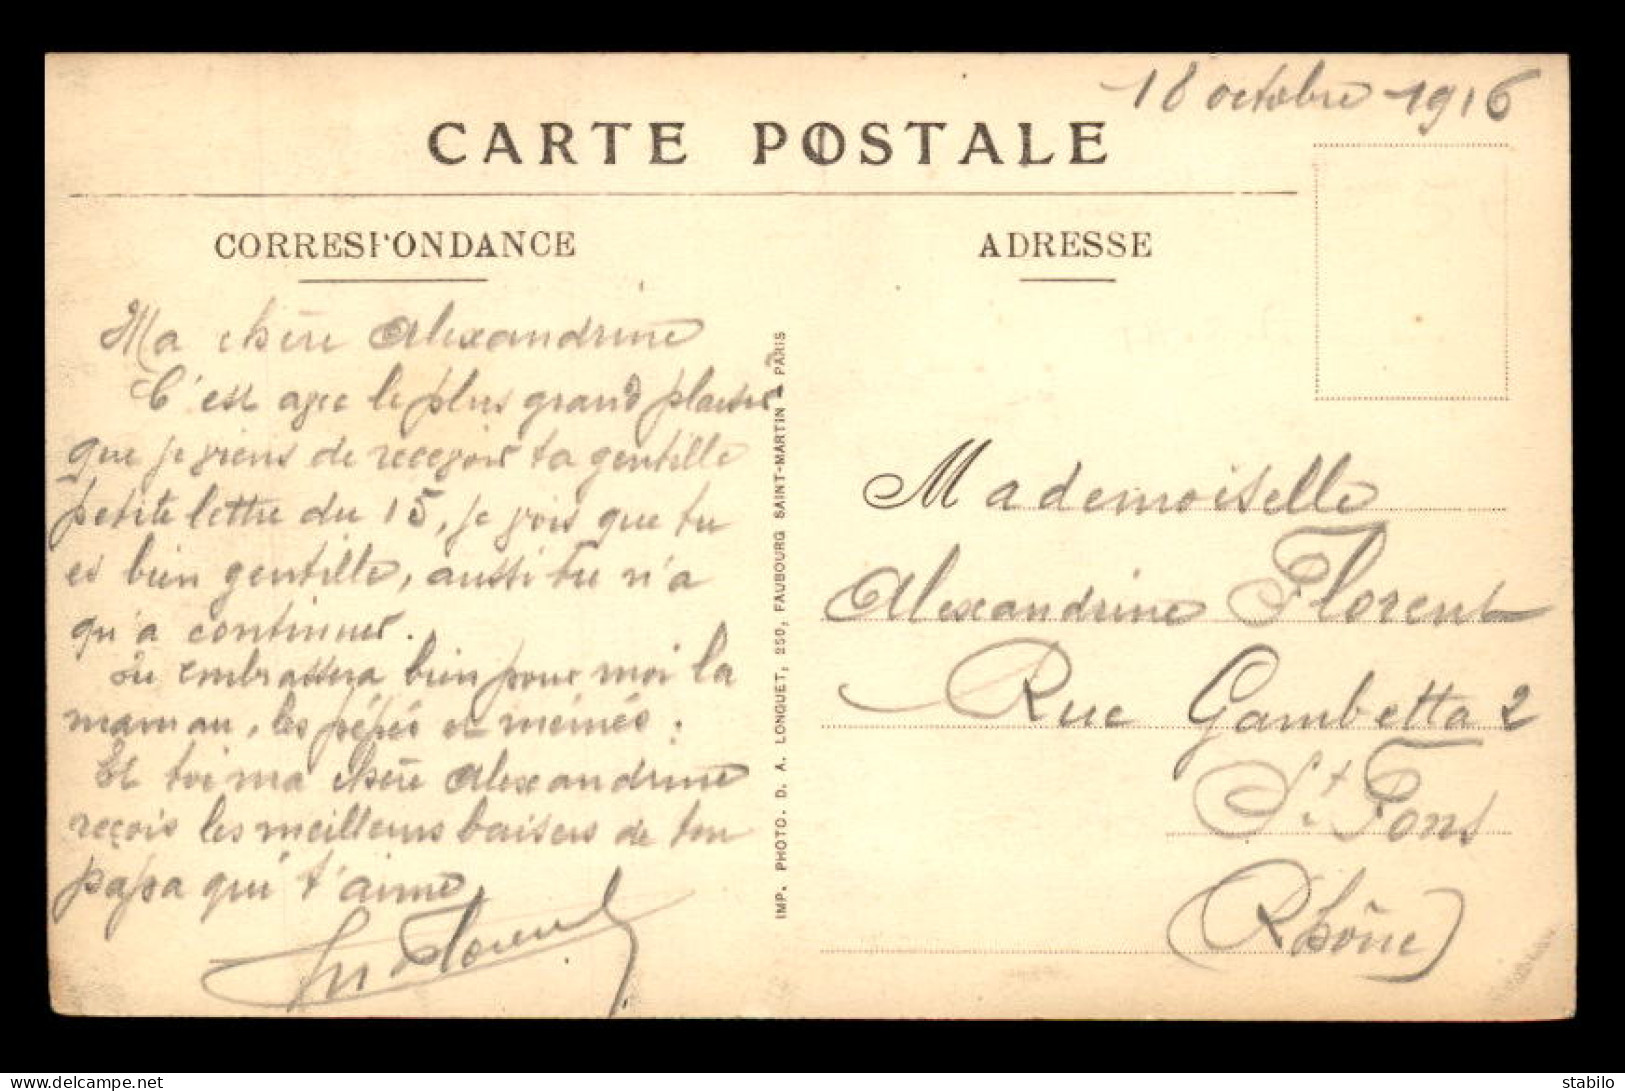 18 octobre 1916
CARTE POSTALE
CORRESPONDANCE
ADRESSE
Ma chère Alexandrine
C'est avec le plus grand plaisir
que je viens de recevoir ta gentille
petite lettre du 15, je vois que tu
es bien gentille, aussi tu n'a
qu'a continuer.
Tu embrassera bien pour moi la
maman, les pépés et mémés ;
Et toi ma chère Alexandrine
reçois les meilleurs baisers de ton
papa qui t'aime
Florent
IMP. PHOTO. D. A. LONGUET, 250, FAUBOURG SAINT-MARTIN - PARIS
Mademoiselle
Alexandrine Florent
Rue Gambetta 2
St Fons
(Rhône)
www.delcampe.net
stabilo